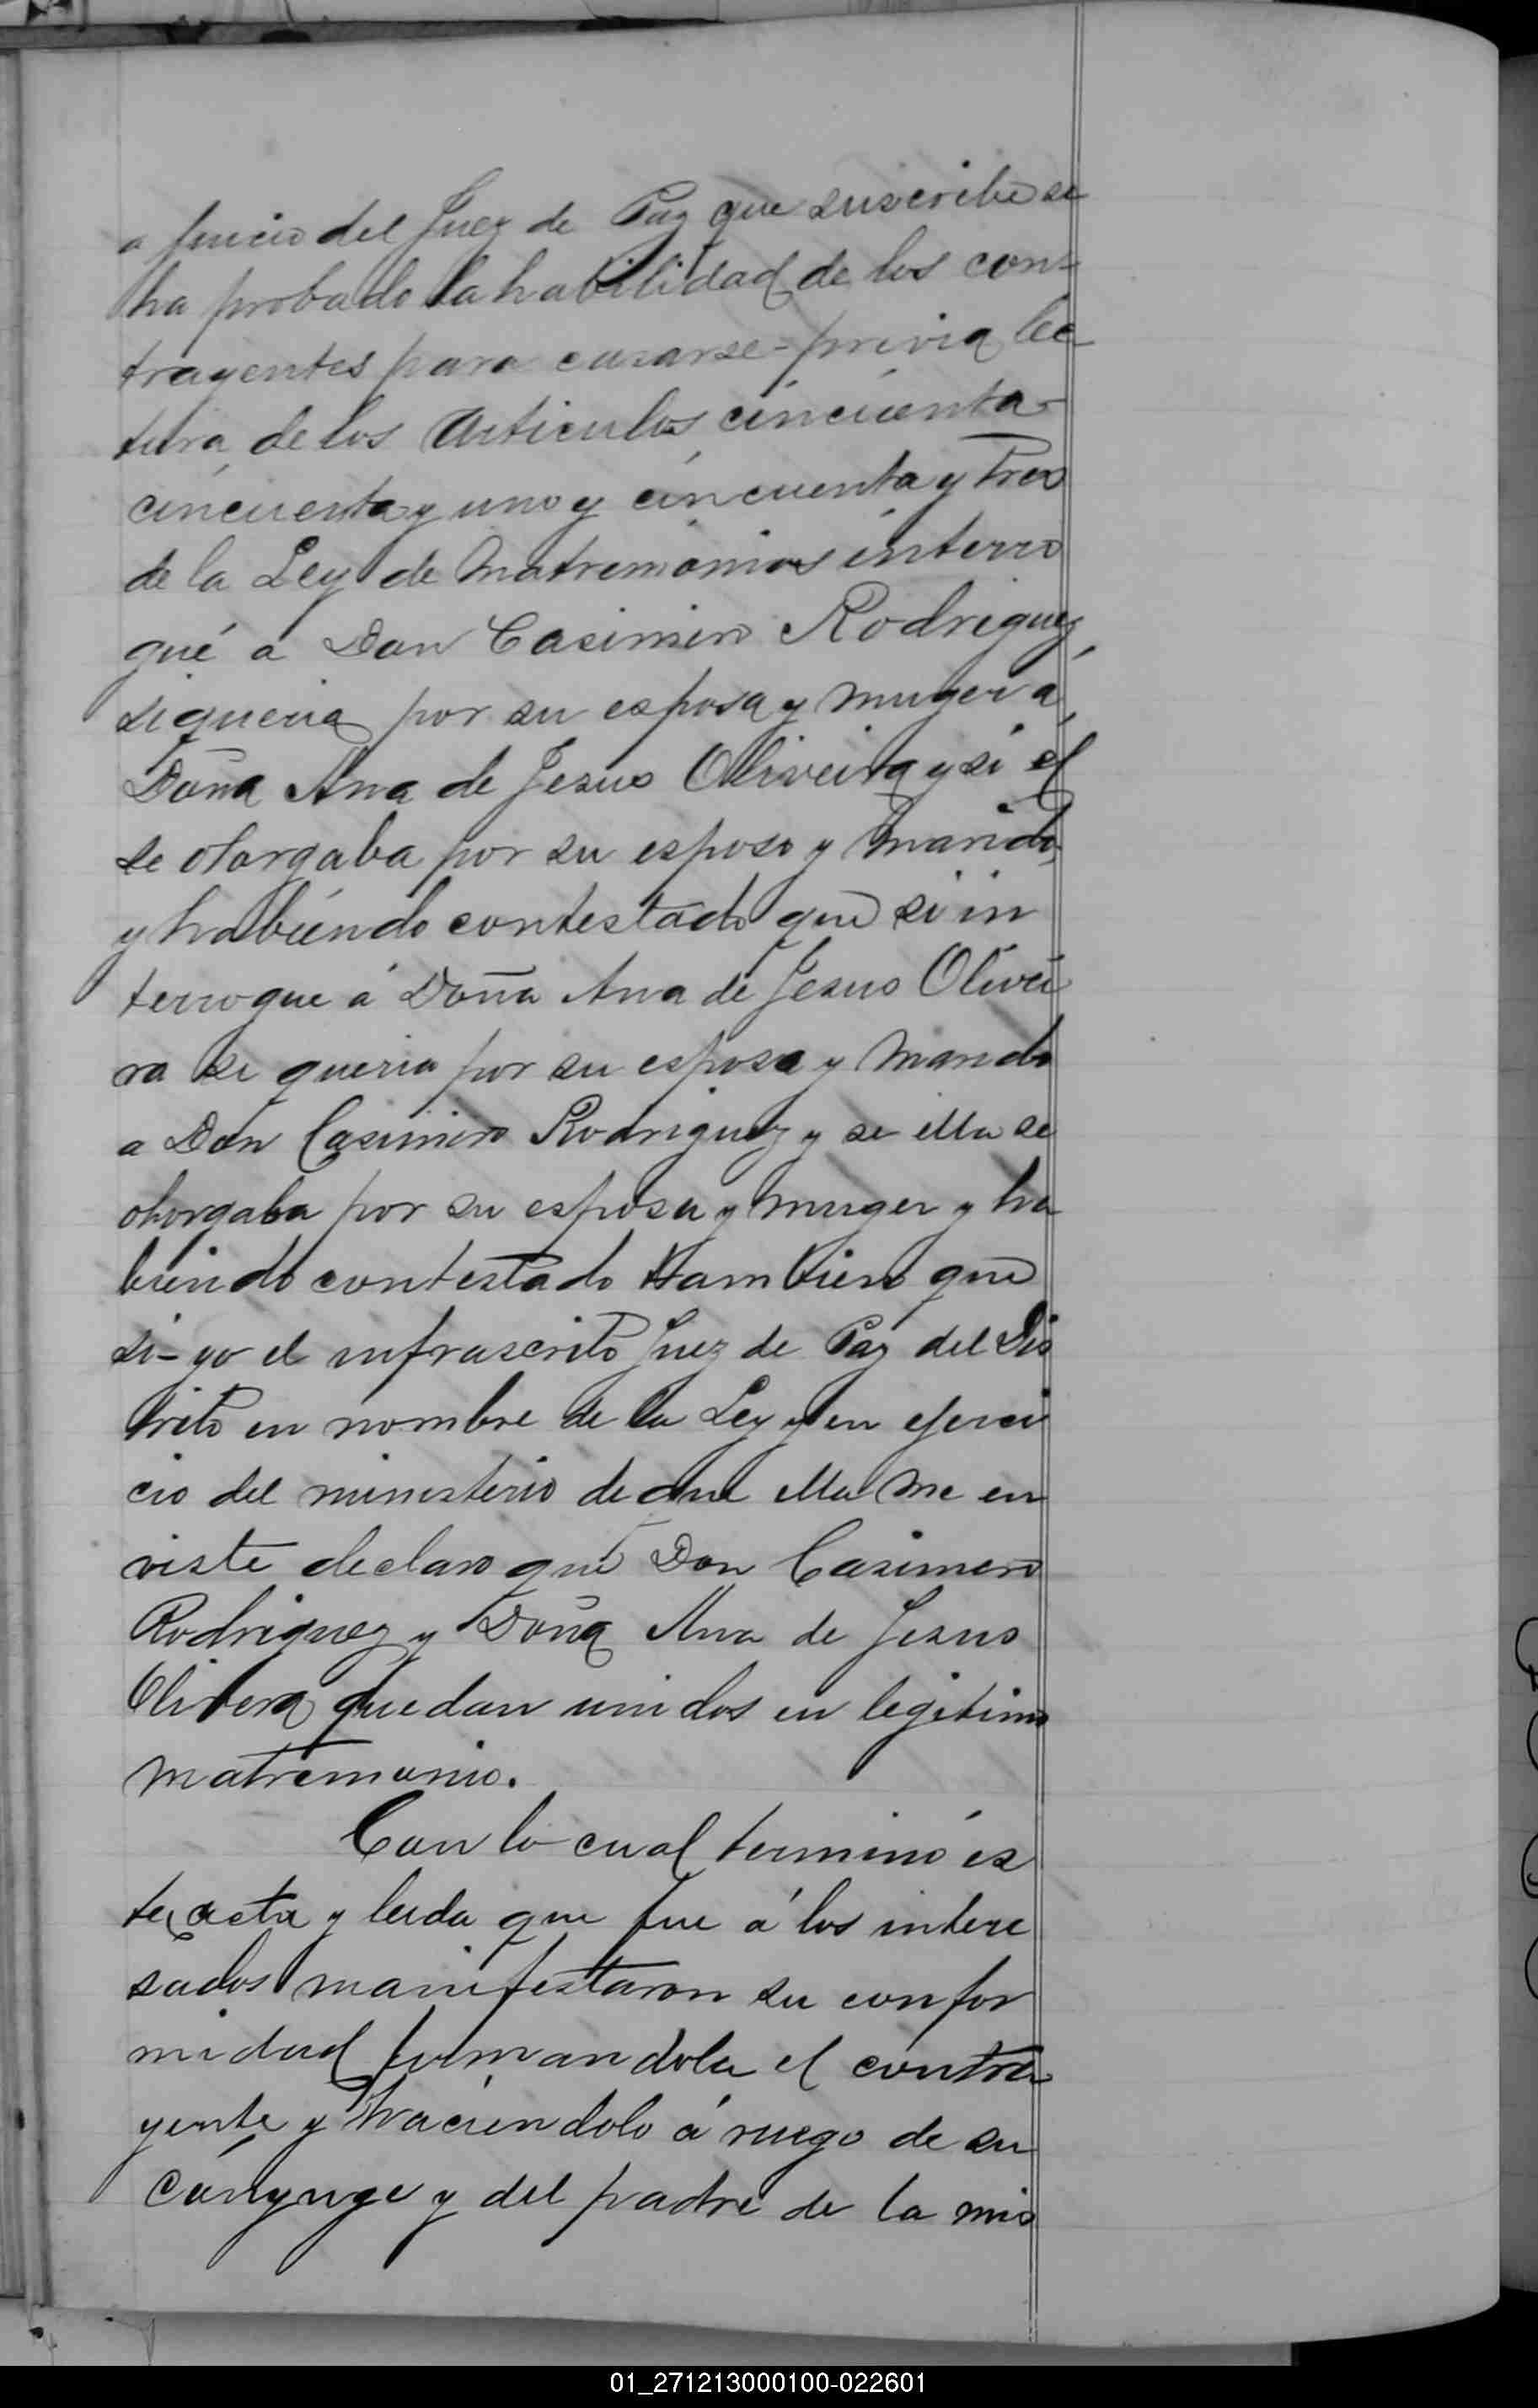 a juicio del Juez de Paz que suscribe se
ha probado la habilidad de los con-
trayentes para casarse - previa lec
tura de los Articulos cincuenta-
cincuenta y uno y cincuenta y tres
de la Ley de Matremonios interro
gué a Don Casimiro Rodriguez,
si queria por su esposa y muger a
Doña Ana de Jesus Oliveira y si el
se otorgaba por su esposo y marido,
y habiendo contestado que si in
terrogue á Doña Ana de Jesus Olivei
ra si queria por su esposo y marido
a Don Casimiro Rodriguez y se ella se
otorgaba por su esposa y muger y ha
biendo contestado tambien que
si - yo el infrascrito Juez de Paz del Dis
trito en nombre de la Ley y en ejerci
cio del ministerio de que ella me en
viste declaro que Don Casimero
Rodriguez y Doña Ana de Jesus
Olivera quedan unidos en legitimo
matremonio.
Con lo cual terminó es
te acta y leida que fue á los intere
sados manifestaron su confor
midad firmandola el contra
yente y haciendolo á ruego de su
cónyuge y del padre de la mis
01_271213000100-022601